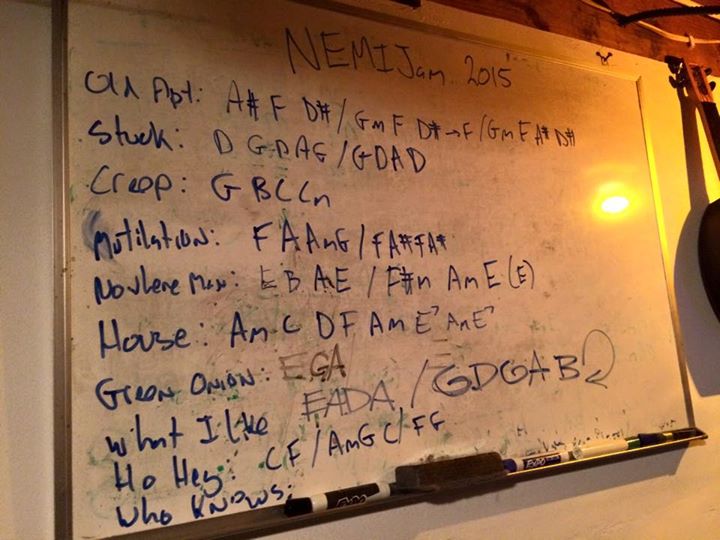 NEMI Jam 2015
Old Apt: A# F D# / Gm F D# → F / Gm F A# D#
Stuck: D G D A G / G D A D
Creep: G B C Cm
Mutilation: F A Am G / F A# F A#
Nowhere Man: E B A E / F#m Am E (E)
House: Am C D F Am E7 Am E7
Green Onion: E G A
What I Like EADA / GDGAB
Ho Hey: CF / Am G C / FG
Who Knows:
EXPO
EXPO